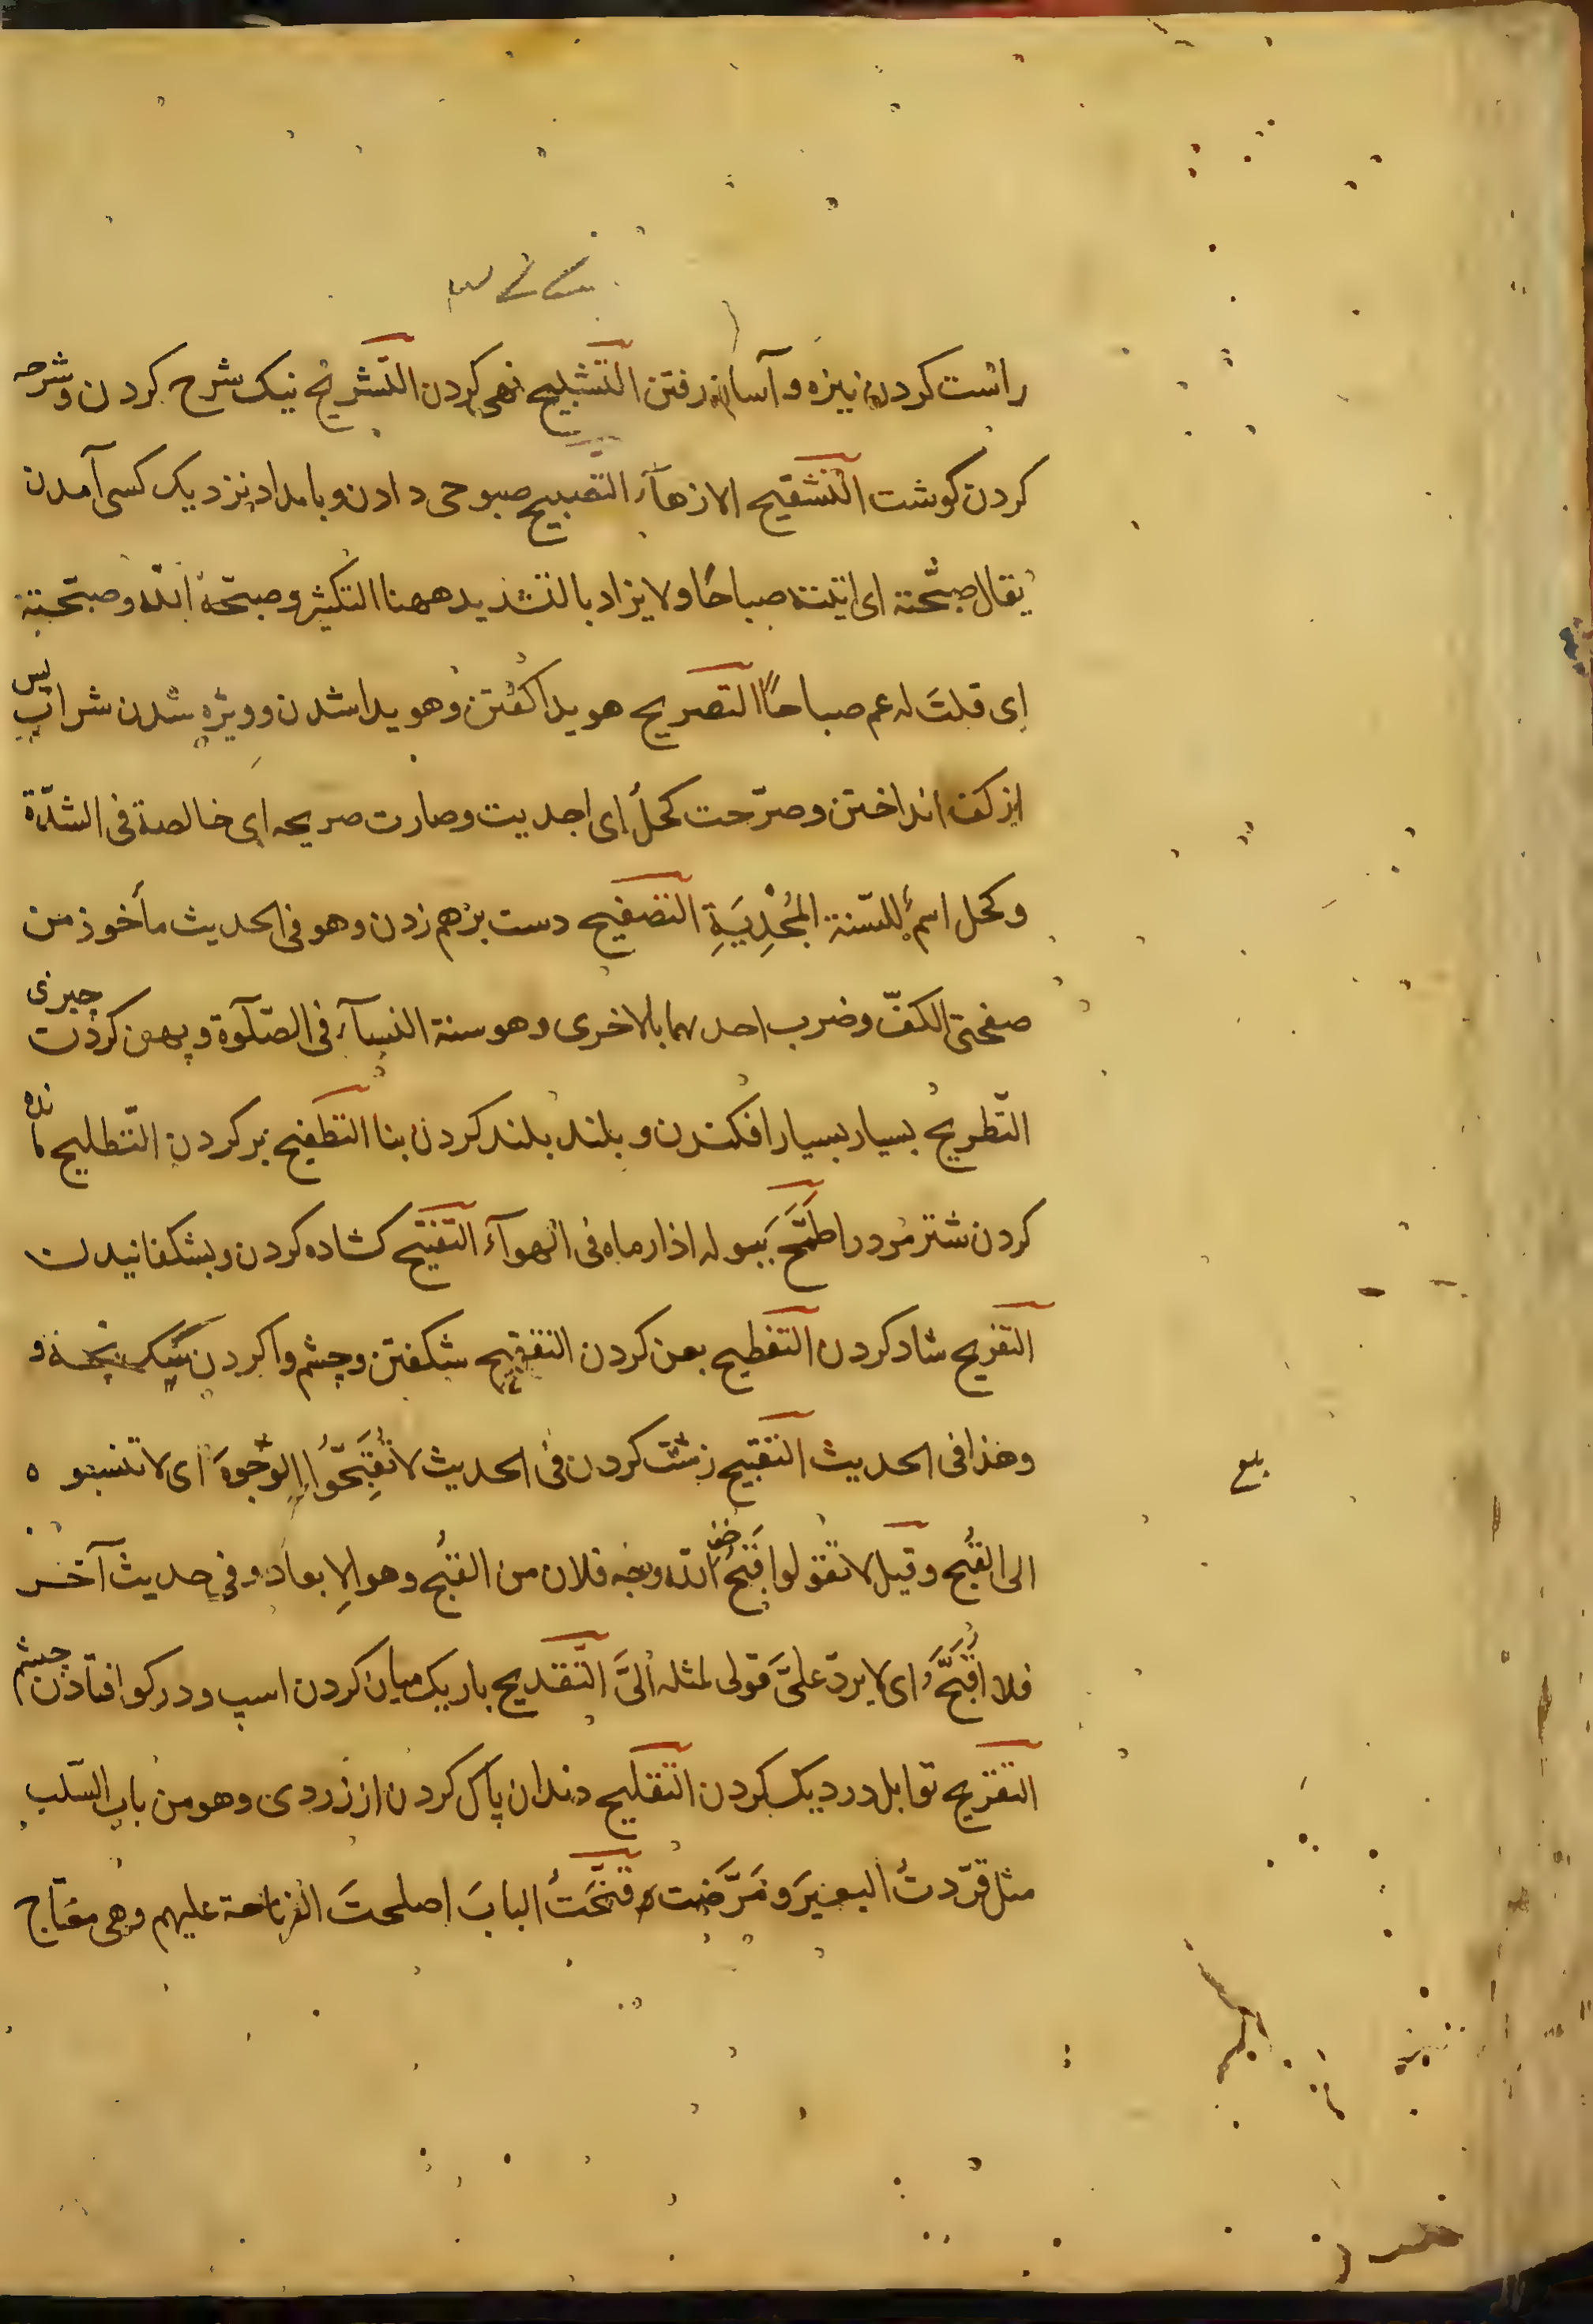 راست کردن نیزه و آسان رفتن التشلیح تهی کردن التشریح نیک شرح کردن و شرحه
کردن کوشت التشقیح الازهآء التصبیح صبوحی دادن و بامداد نزدیک کسی آمدن
یقال صبّحته ای اتیته صباحًا ولا یزاد بالتشدید ههنا التکثیر وصبّحه الله وصبّحته
ای قلتَ له عم صباحًا التصریح هویدا کفتن و هویدا شدن و ویژه شدن شراب پس
از کف انداختن وصرّحت کحلُ ای اجدبت وصارت صریحه ای خالصة فی الشدّة
وکحل اسمٌ للسّنة المُجْدِبَةِ التصفیح دست برهم زدن وهو فی الحدیث مأخوذ من
صفحتی الکفّ وضرب احدیهما بالاخری وهو سنة النسآء فی الصّلوة و پهن کردن چیزی
التّطریح بسیار بسیار افکندن و بلند بلند کردن بنا التطفیح پر کردن التّطلیح مانده
کردن شتر مرد را طَمَّحَ ببوله اذا رماه فی الهوآء التّفتیح کشاده کردن و بشکفانیدن
التفریح شاد کردن التّفطیح پهن کردن التفقیح شکفتن و چشم وا کردن سک بچه و
وهذا فی الحدیث التقبیح زشت کردن فی الحدیث لا تُقَبِّحُوا الوُجُوهَ ای لا تنسبوه
الی القُبح وقیل لا تقولوا قَبَحَ الله وجه فلان من القَبْح وهو الابعاد وفی حدیث آخر
فلا اُقَبَّحُ ای لا یردّ علیَّ قولی لمثله اِلیَّ التّقدیح باریک میان کردن اسپ و در کو افتادن چشم
التقزیح توابل در دیک کردن التّقلیح دندان پاک کردن از زردی وهو من باب السّلب
مثل قرّدتُ البعیرَ ومَرَّضت قنّحَتُ البابَ اصلحتَ علیهم وهی مفتاح
بلغ